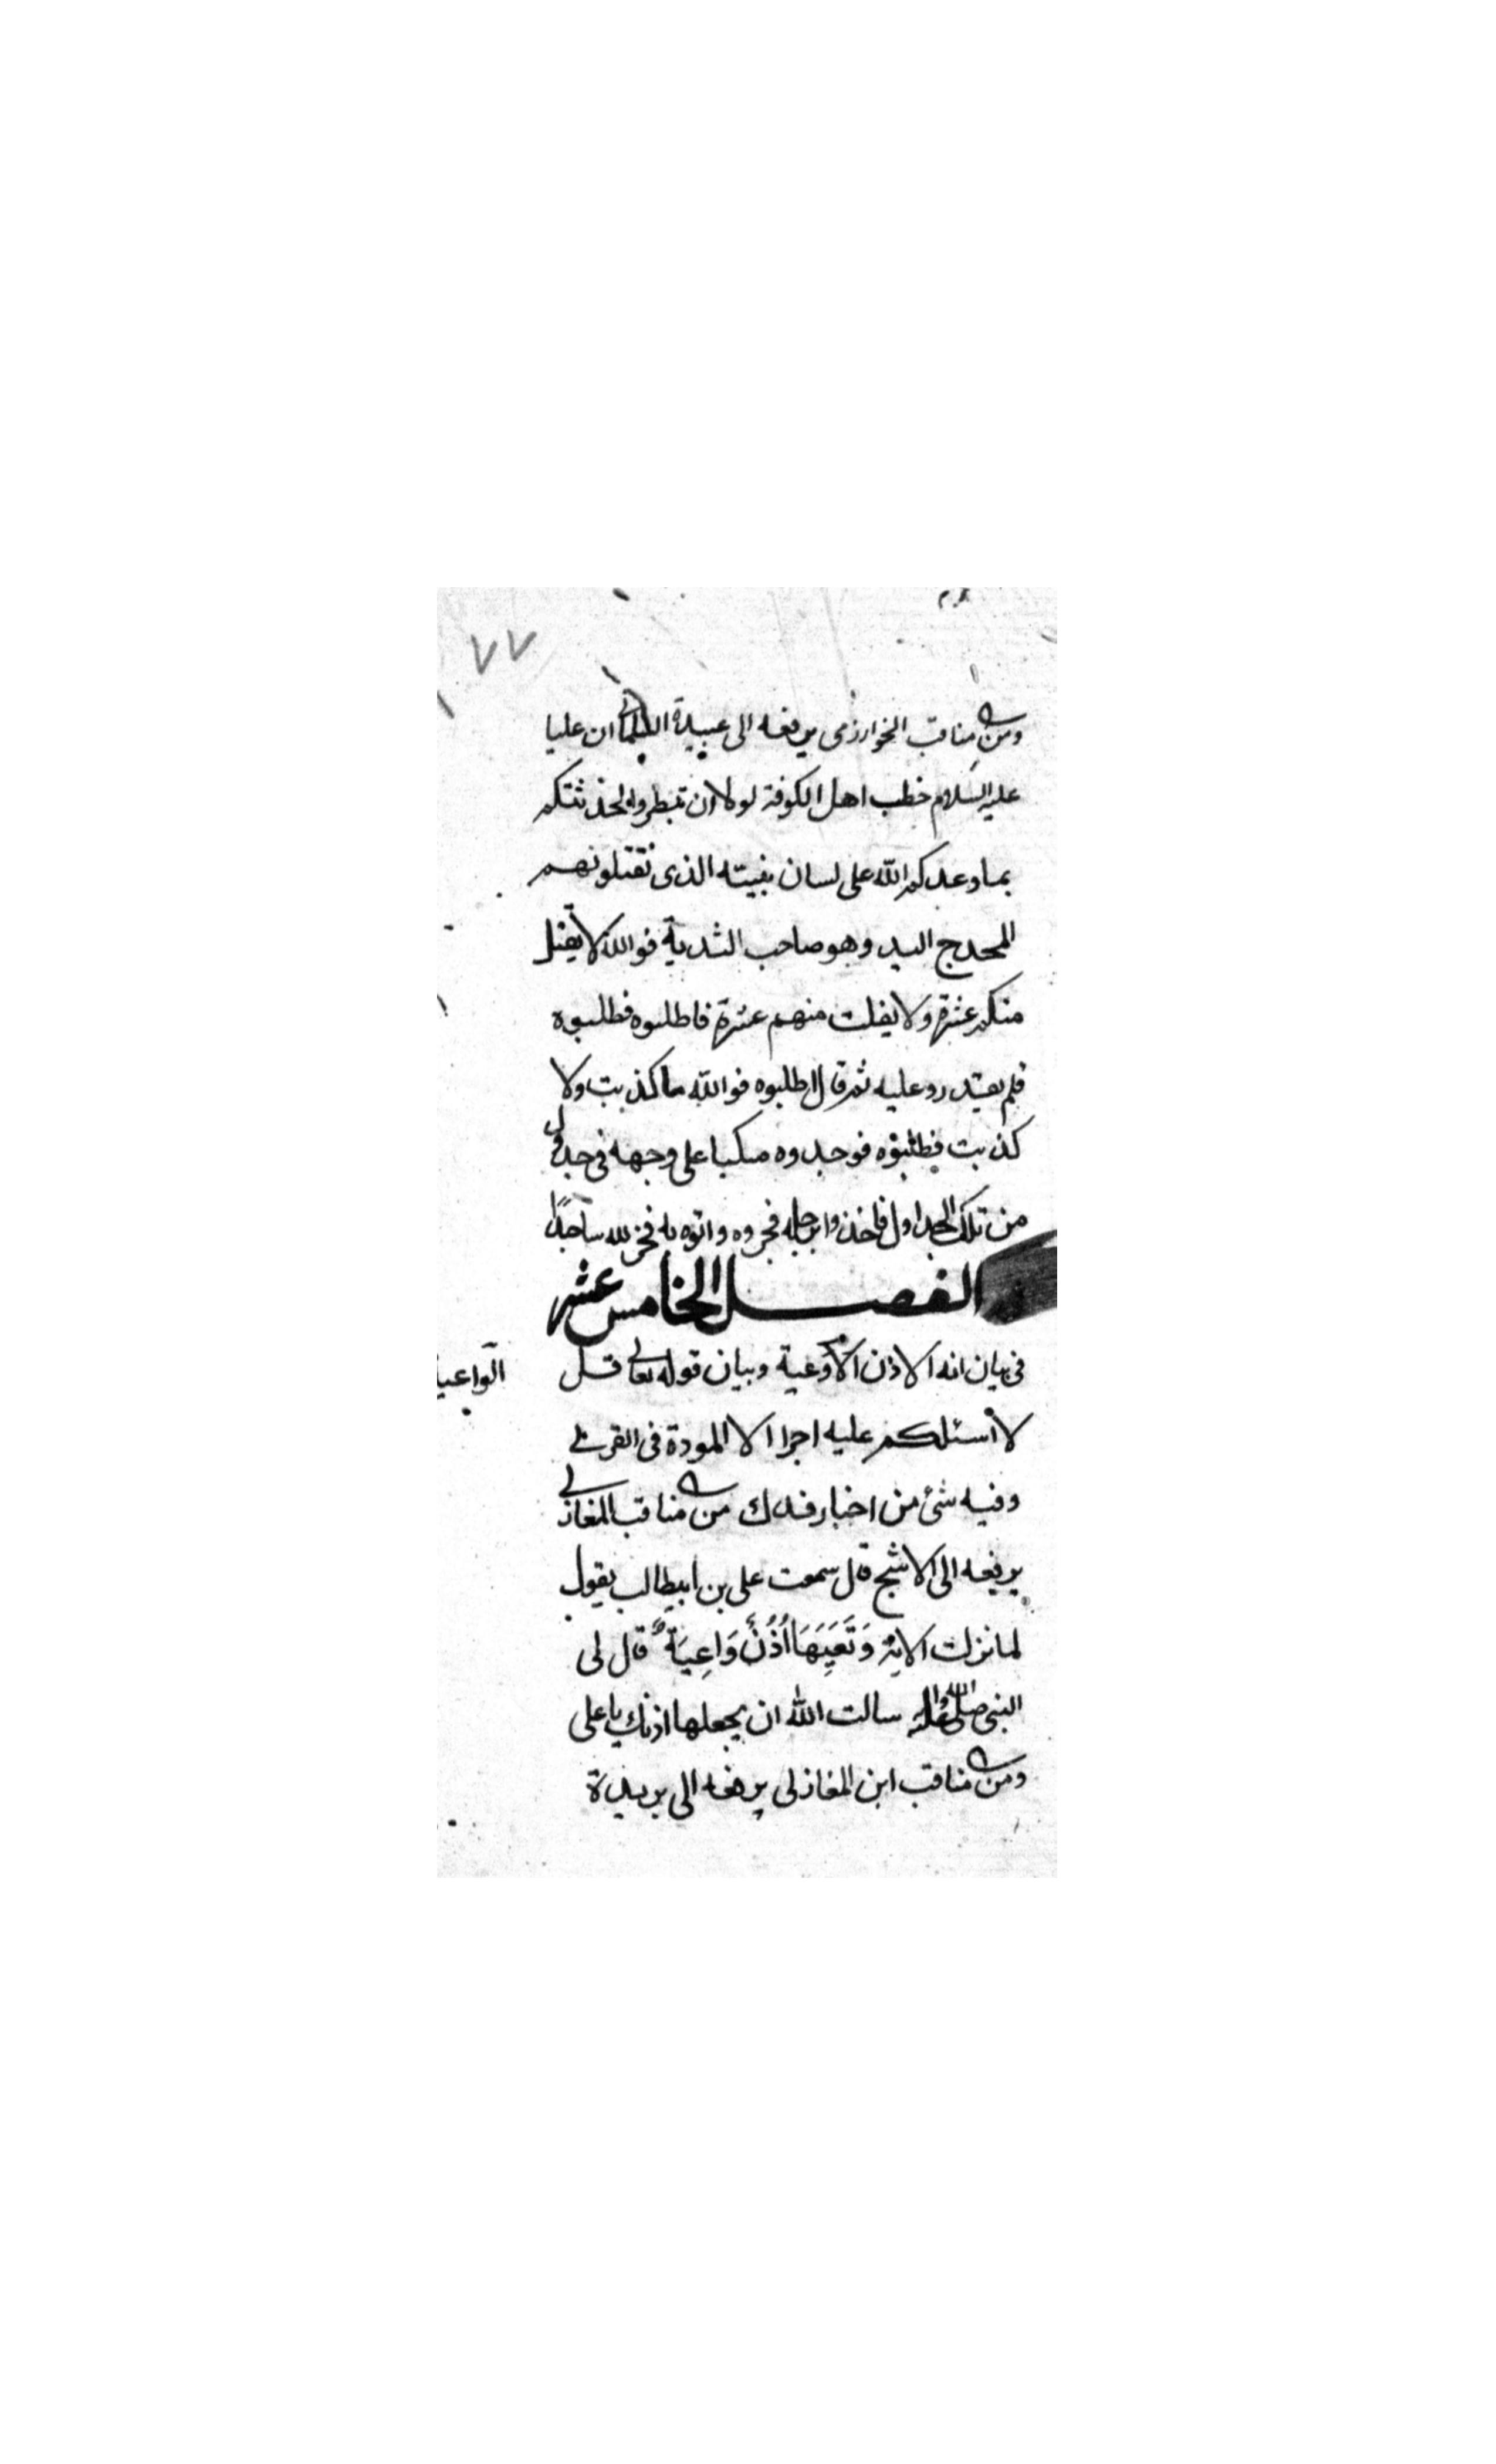 ٧٧
ومن مناقب الخوارزمى يرفعه الى عبيدة السلمانى ان عليا
عليه السلام خطب اهل الكوفة لولا ان تبطروا لحدثتكم
بما وعدكم الله على لسان نبيته الذى تقتلونهم
المحدج اليد وهو صاحب الثدية فوالله لا يقتل
منكم عشرة ولا يفلت منهم عشرة فاطلبوه فطلبوه
فلم يقتدروا عليه ثم قال اطلبوه فوالله ما كذبت ولا
كذبت فطلبوه فوجدوه مكبا على وجهه فى جدول
من تلك الجداول فاخذوا برجله فجروه واتوه به فخر لله ساجدًا
الفصل الخامس عشر
فى بيان انه الاذن الاوعية وبيان قوله تعالى قل
الواعية
لا أسئلكم عليه اجرا الا المودة فى القربى
وفيه شئ من اخبار فدك من مناقب المغازلى
يرفعه الى الاشج قال سمعت على بن ابيطالب يقول
لما نزلت الاية وَتَعِيَهَا اُذُنٌ وَاعِيَةٌ قال لى
النبى صلى الله عليه واله سالت الله ان يجعلها اذنك يا على
ومن مناقب ابن المغازلى يرفعه الى بريدة